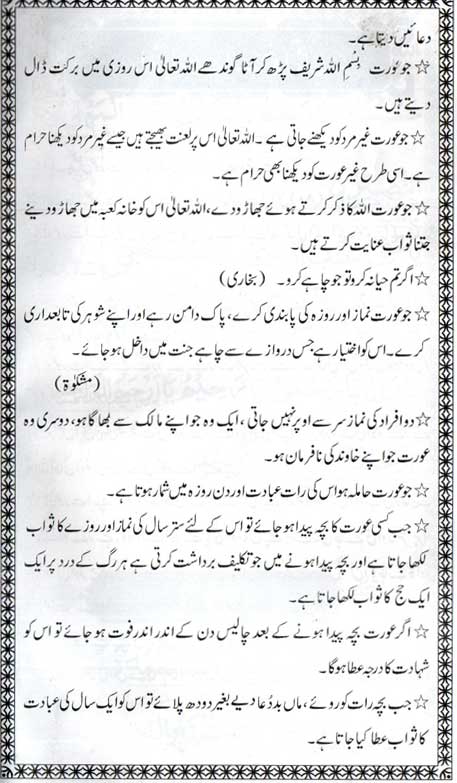 دعائیں دیتا ہے۔
☆ جو عورت بِسمِ اللہ شریف پڑھ کر آٹا گوندھے اللہ تعالیٰ اس روزی میں برکت ڈال
دیتے ہیں۔
☆ جو عورت غیر مرد کو دیکھنے جاتی ہے ۔اللہ تعالیٰ اس پر لعنت بھیجتے ہیں جیسے غیر مرد کو دیکھنا حرام
ہے۔ اسی طرح غیر عورت کو دیکھنا بھی حرام ہے۔
☆ جو عورت اللہ کا ذکر کرتے ہوئے جھاڑو دے، اللہ تعالیٰ اس کو خانہ کعبہ میں جھاڑو دینے
جتنا ثواب عنایت کرتے ہیں۔
☆ اگر تم حیا نہ کرو تو جو چاہے کرو۔ (بخاری)
☆ جو عورت نماز اور روزہ کی پابندی کرے، پاک دامن رہے اور اپنے شوہر کی تابعداری
کرے۔ اس کو اختیار ہے جس دروازے سے چاہے جنت میں داخل ہو جائے۔
(مشکوٰۃ)
☆ دو افراد کی نماز سر سے اوپر نہیں جاتی ، ایک وہ جو اپنے مالک سے بھاگا ہو، دوسری وہ
عورت جو اپنے خاوند کی نافرمان ہو۔
☆ جو عورت حاملہ ہو اس کی رات عبادت اور دن روزہ میں شمار ہوتا ہے۔
☆ جب کسی عورت کا بچہ پیدا ہو جائے تو اس کے لئے ستر سال کی نماز اور روزے کا ثواب
لکھا جاتا ہے اور بچہ پیدا ہونے میں جو تکلیف برداشت کرتی ہے ہر رگ کے درد پر ایک
ایک حج کا ثواب لکھا جاتا ہے۔
☆ اگر عورت بچہ پیدا ہونے کے بعد چالیس دن کے اندر اندر فوت ہو جائے تو اس کو
شہادت کا درجہ عطا ہوگا۔
☆ جب بچہ رات کو روئے ، ماں بددُعا دیے بغیر دودھ پلائے تو اس کو ایک سال کی عبادت
کا ثواب عطا کیا جاتا ہے۔